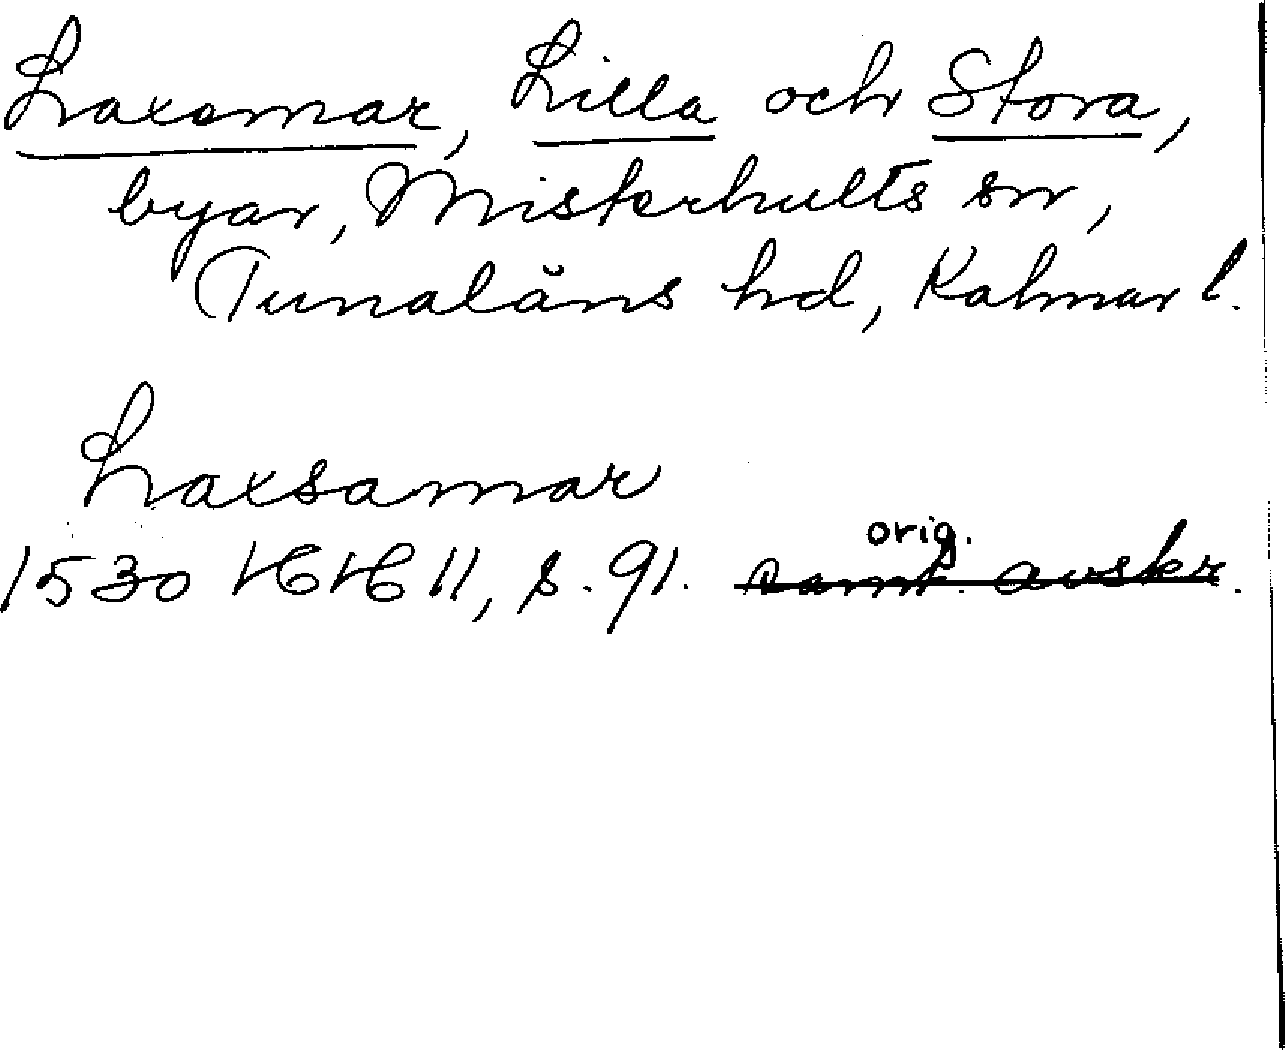 Laxemar, Lilla och Stora,
byar, Misterhults sn,
Tunaläns hd, Kalmar l.
Laxsamar
orig.
1530 HH 11, s. 91. samt. avskr.